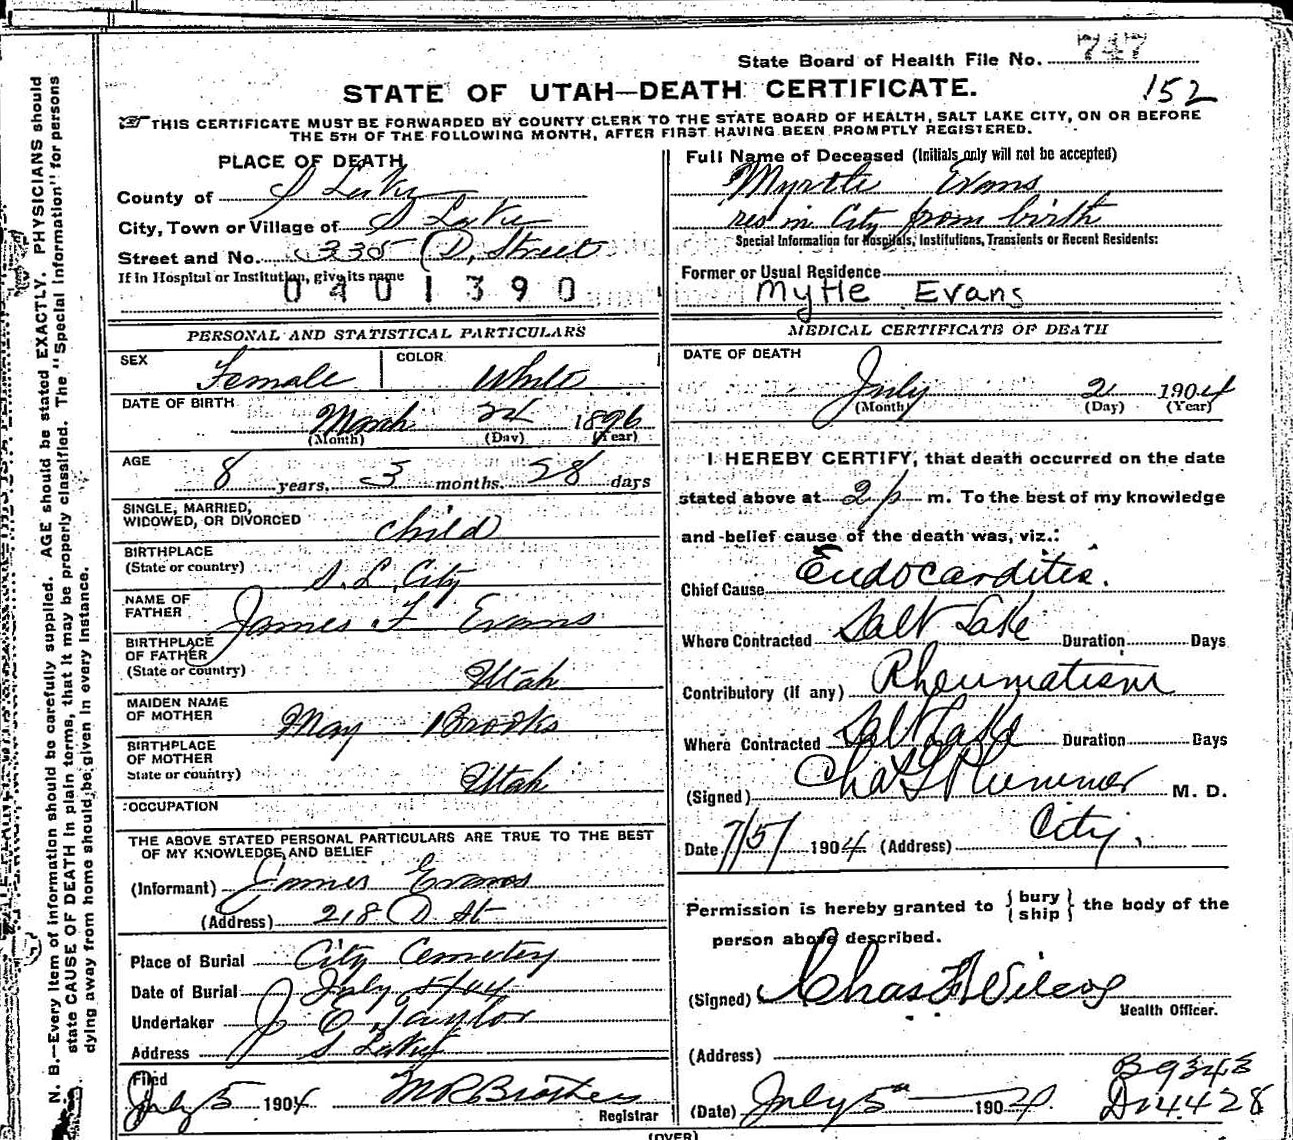 State Board of Health File No. 747
152
STATE OF UTAH—DEATH CERTIFICATE.
THIS CERTIFICATE MUST BE FORWARDED BY COUNTY CLERK TO THE STATE BOARD OF HEALTH, SALT LAKE CITY, ON OR BEFORE
THE 5TH OF THE FOLLOWING MONTH, AFTER FIRST HAVING BEEN PROMPTLY REGISTERED.
N. B.—Every item of information should be carefully supplied. AGE should be stated EXACTLY. PHYSICIANS should
state CAUSE OF DEATH in plain terms, that it may be properly classified. The "Special Information" for persons
dying away from home should be given in every instance.
PLACE OF DEATH
County of S Lake
City, Town or Village of S Lake
Street and No. 335 D. Street
If in Hospital or Institution, give its name
0401390
Full Name of Deceased (Initials only will not be accepted)
Myrtle Evans
res in City from birth
Special Information for Hospitals, Institutions, Transients or Recent Residents:
Former or Usual Residence
Mytle Evans
PERSONAL AND STATISTICAL PARTICULARS
SEX Female COLOR White
DATE OF BIRTH March 24 1896
(Month) (Day) (Year)
AGE 8 years, 3 months, 28 days
SINGLE, MARRIED,
WIDOWED, OR DIVORCED child
BIRTHPLACE
(State or country) S. L. City
NAME OF
FATHER James F Evans
BIRTHPLACE
OF FATHER
(State or country) Utah
MAIDEN NAME
OF MOTHER May Brooks
BIRTHPLACE
OF MOTHER
State or country) Utah
OCCUPATION
THE ABOVE STATED PERSONAL PARTICULARS ARE TRUE TO THE BEST
OF MY KNOWLEDGE AND BELIEF
(Informant) James Evans
(Address) 218 D St
Place of Burial City Cemetery
Date of Burial July 5/04
Undertaker J E Taylor
Address S Lake
Filed
July 5 1904
Registrar
MEDICAL CERTIFICATE OF DEATH
DATE OF DEATH
July 2 1904
(Month) (Day) (Year)
I HEREBY CERTIFY, that death occurred on the date
stated above at 2 p m. To the best of my knowledge
and belief cause of the death was, viz.:
Chief Cause Endocarditis.
Where Contracted Salt Lake Duration Days
Contributory (if any) Rheumatism
Where Contracted Salt Lake Duration Days
(Signed) Chas L Plummer M. D.
Date 7/5/ 1904 (Address) City.
Permission is hereby granted to { bury
ship } the body of the
person above described.
(Signed) Chas F Wilcox
Health Officer.
(Address)
B9348
(Date) July 5" 1904. D14428
(OVER)